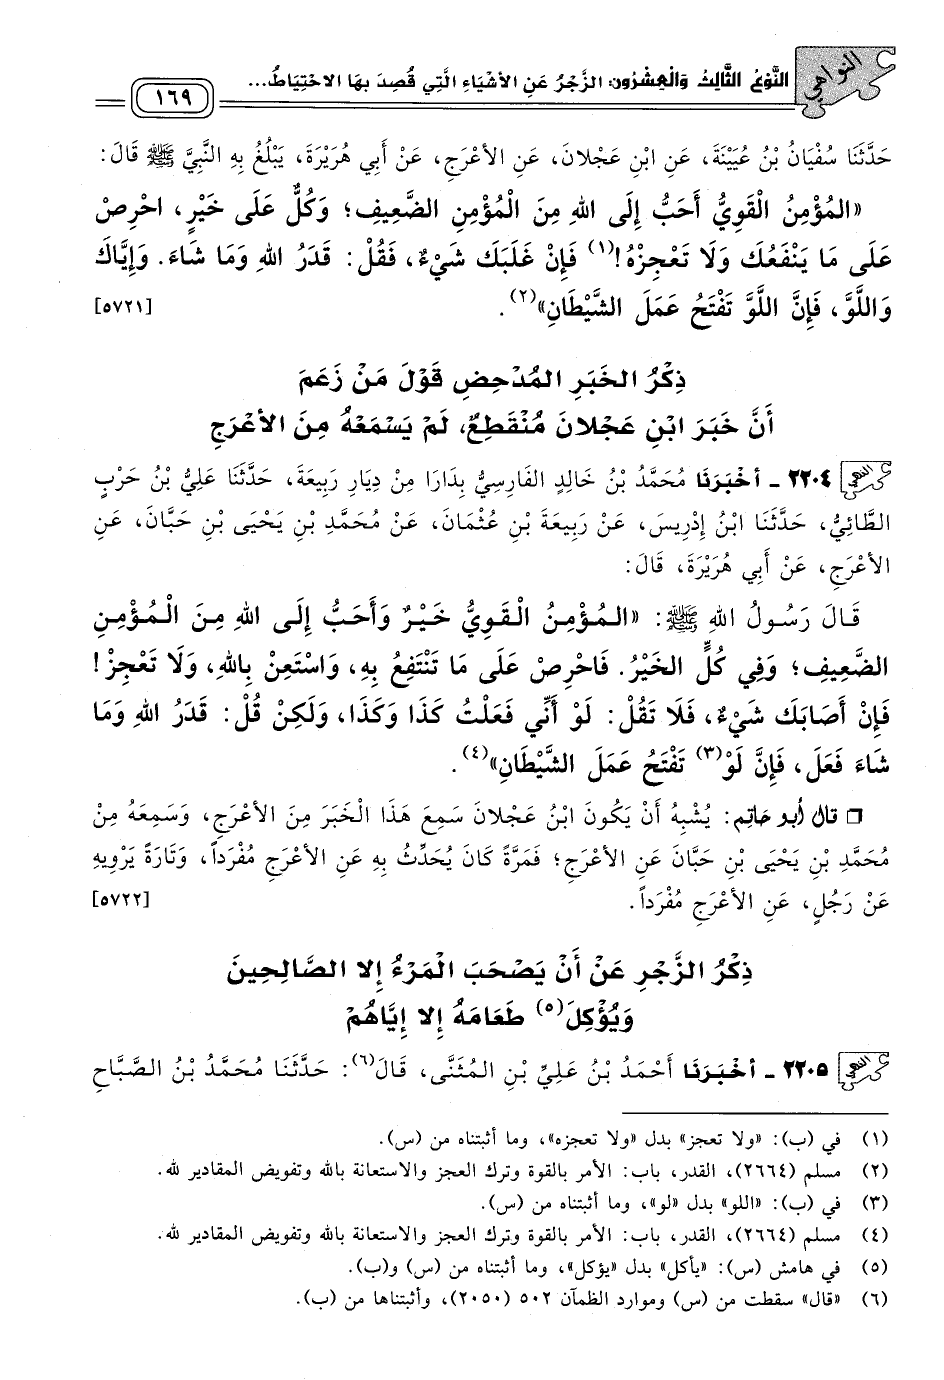 النواهي
النَّوْعُ الثَّالِثُ وَالْعِشْرُونَ: الزَّجْرُ عَنِ الأَشْيَاءِ الَّتِي قُصِدَ بِهَا الاحْتِيَاطُ...
١٦٩
حَدَّثَنَا سُفْيَانُ بْنُ عُيَيْنَةَ، عَنِ ابْنِ عَجْلَانَ، عَنِ الأَعْرَجِ، عَنْ أَبِي هُرَيْرَةَ، يَبْلُغُ بِهِ النَّبِيَّ ﷺ قَالَ:
«الْمُؤْمِنُ الْقَوِيُّ أَحَبُّ إِلَى اللهِ مِنَ الْمُؤْمِنِ الضَّعِيفِ؛ وَكُلٌّ عَلَى خَيْرٍ، احْرِصْ
عَلَى مَا يَنْفَعُكَ وَلَا تَعْجِزْهُ!(١) فَإِنْ غَلَبَكَ شَيْءٌ، فَقُلْ: قَدَرُ اللهِ وَمَا شَاءَ. وَإِيَّاكَ
وَاللَّوَّ، فَإِنَّ اللَّوَّ تَفْتَحُ عَمَلَ الشَّيْطَانِ»(٢). [٥٧٢١]
ذِكْرُ الخَبَرِ المُدْحِضِ قَوْلَ مَنْ زَعَمَ
أَنَّ خَبَرَ ابْنِ عَجْلانَ مُنْقَطِعٌ، لَمْ يَسْمَعْهُ مِنَ الأَعْرَجِ
٢٢٠٤ ـ أَخْبَرَنَا مُحَمَّدُ بْنُ خَالِدٍ الفَارِسِيُّ بِدَارَا مِنْ دِيَارِ رَبِيعَةَ، حَدَّثَنَا عَلِيُّ بْنُ حَرْبٍ
الطَّائِيُّ، حَدَّثَنَا ابْنُ إِدْرِيسَ، عَنْ رَبِيعَةَ بْنِ عُثْمَانَ، عَنْ مُحَمَّدِ بْنِ يَحْيَى بْنِ حَبَّانَ، عَنِ
الأَعْرَجِ، عَنْ أَبِي هُرَيْرَةَ، قَالَ:
قَالَ رَسُولُ اللهِ ﷺ: «الْمُؤْمِنُ الْقَوِيُّ خَيْرٌ وَأَحَبُّ إِلَى اللهِ مِنَ الْمُؤْمِنِ
الضَّعِيفِ؛ وَفِي كُلٍّ الخَيْرُ. فَاحْرِصْ عَلَى مَا تَنْتَفِعُ بِهِ، وَاسْتَعِنْ بِاللهِ، وَلَا تَعْجِزْ!
فَإِنْ أَصَابَكَ شَيْءٌ، فَلَا تَقُلْ: لَوْ أَنِّي فَعَلْتُ كَذَا وَكَذَا، وَلَكِنْ قُلْ: قَدَرُ اللهِ وَمَا
شَاءَ فَعَلَ، فَإِنَّ لَوْ(٣) تَفْتَحُ عَمَلَ الشَّيْطَانِ»(٤).
❒ قال أبو حاتِم: يُشْبِهُ أَنْ يَكُونَ ابْنُ عَجْلَانَ سَمِعَ هَذَا الْخَبَرَ مِنَ الأَعْرَجِ، وَسَمِعَهُ مِنْ
مُحَمَّدِ بْنِ يَحْيَى بْنِ حَبَّانَ عَنِ الأَعْرَجِ؛ فَمَرَّةً كَانَ يُحَدِّثُ بِهِ عَنِ الأَعْرَجِ مُفْرَداً، وَتَارَةً يَرْوِيهِ
عَنْ رَجُلٍ، عَنِ الأَعْرَجِ مُفْرَداً. [٥٧٢٢]
ذِكْرُ الزَّجْرِ عَنْ أَنْ يَصْحَبَ الْمَرْءُ إِلا الصَّالِحِينَ
وَيُؤْكِلَ(٥) طَعَامَهُ إِلا إِيَّاهُمْ
٢٢٠٥ ـ أَخْبَرَنَا أَحْمَدُ بْنُ عَلِيِّ بْنِ المُثَنَّى، قَالَ(٦): حَدَّثَنَا مُحَمَّدُ بْنُ الصَّبَّاحِ
(١) في (ب): «ولا تعجز» بدل «ولا تعجزه»، وما أثبتناه من (س).
(٢) مسلم (٢٦٦٤)، القدر، باب: الأمر بالقوة وترك العجز والاستعانة بالله وتفويض المقادير لله.
(٣) في (ب): «اللو» بدل «لو»، وما أثبتناه من (س).
(٤) مسلم (٢٦٦٤)، القدر، باب: الأمر بالقوة وترك العجز والاستعانة بالله وتفويض المقادير لله.
(٥) في هامش (س): «يأكل» بدل «يؤكل»، وما أثبتناه من (س) و(ب).
(٦) «قال» سقطت من (س) وموارد الظمآن ٥٠٢ (٢٠٥٠)، وأثبتناها من (ب).